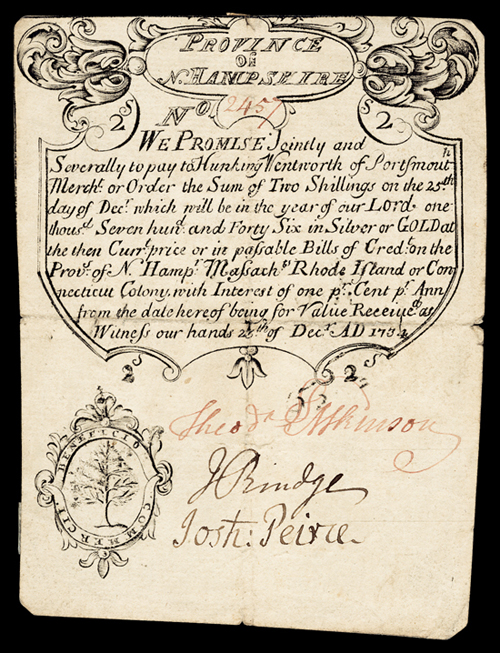 PROVINCE
OF
N. HAMPSHIRE
No. 2457
2s 2s
WE PROMISE Jointly and
Severally to pay to Hunking Wentworth of Portsmouth
Mercht. or Order the Sum of Two Shillings on the 25th
day of Decr. which will be in the year of our Lord. one
thousd. Seven hund. and Forty Six in Silver or GOLD at
the then Currt. price or in passable Bills of Credt. on the
Provs. of N. Hampr. Massachts. Rhode Island or Con-
necticut Colony. with Interest of one pr. Cent pr. Ann
from the date hereof being for Value Received as
Witness our hands 25th of Decr. AD 1734
2s 2s
Theodr. Atkinson
J Rindge
Josh: Peirce
BENEFICIO
COMMERCII